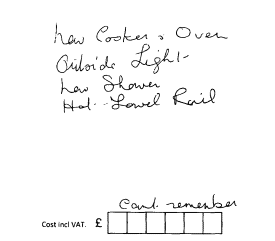 New Cooker & Oven
Outside Light
New Shower
Hot Towel Rail
Cant remember
Cost incl VAT. £